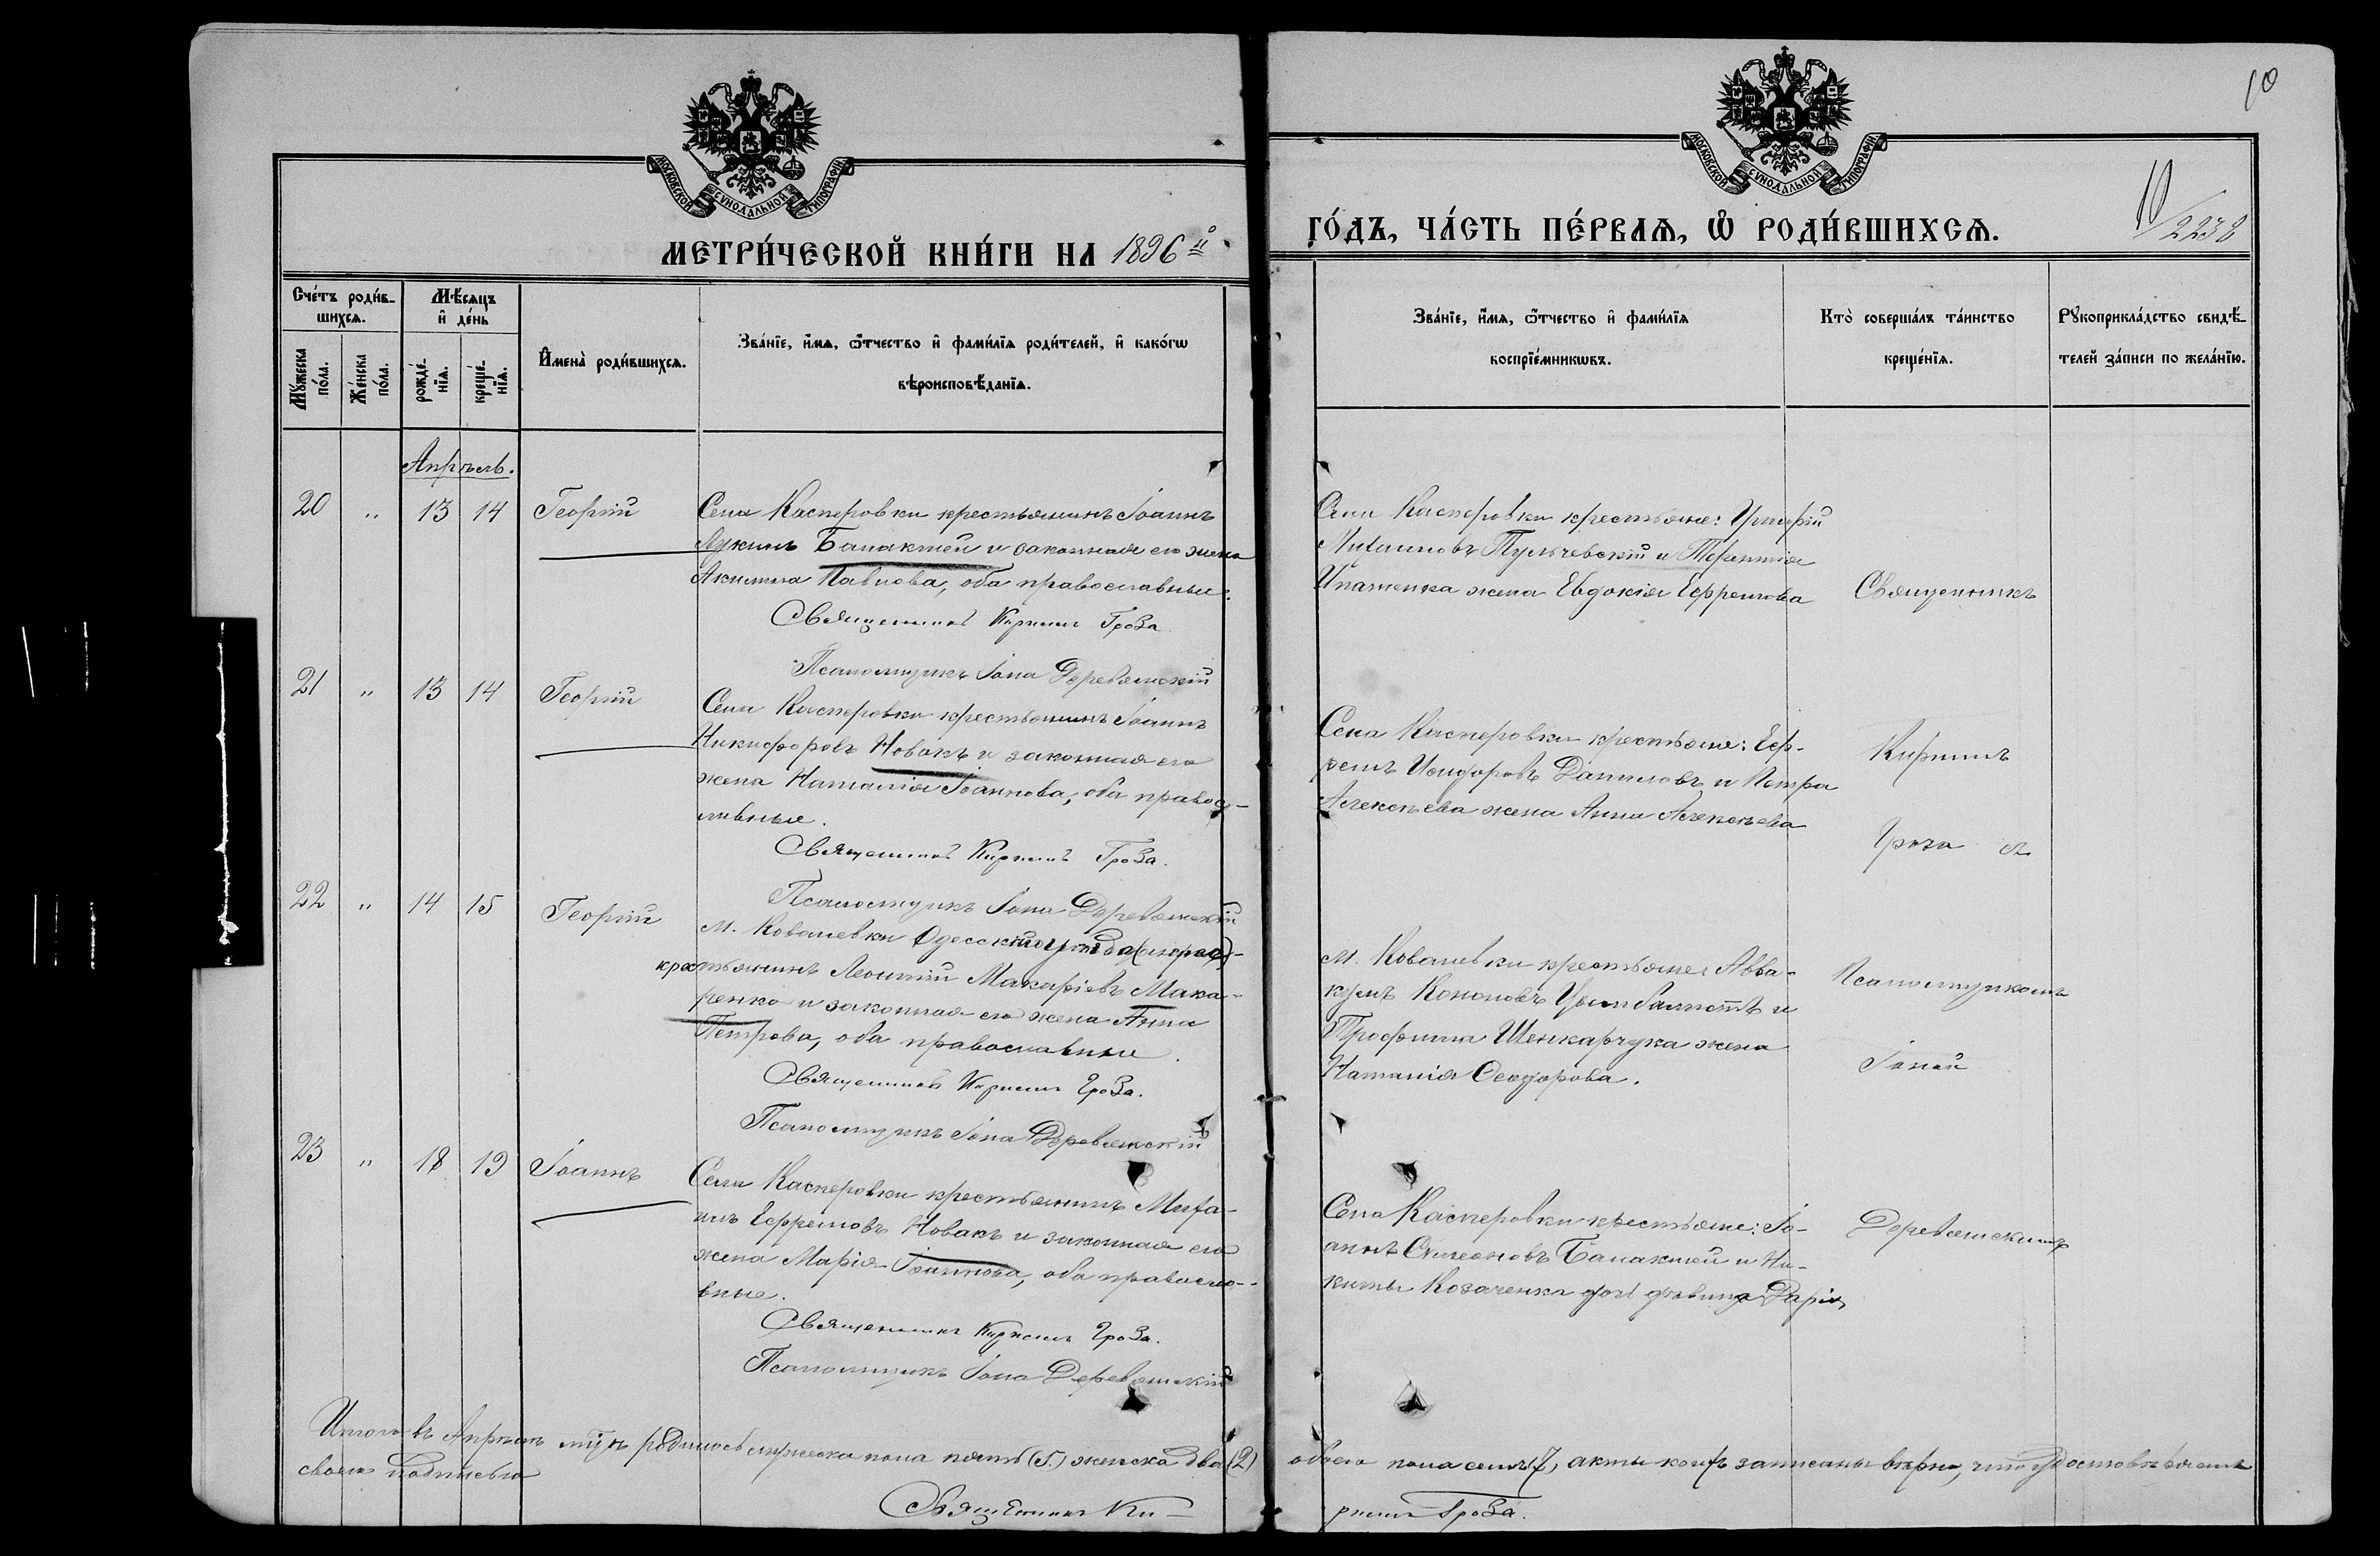 10
МОСКОВСКОЙ СѴНОДАЛЬНОЙ ТИПОГРАФІИ
МОСКОВСКОЙ СѴНОДАЛЬНОЙ ТИПОГРАФІИ
10/2238
МЕТРИ́ЧЕСКОЙ КНИ́ГИ НА 1896й
ГО́ДЪ, ЧА́СТЬ ПЕ́РВАѦ, Ѡ РОДИ́ВШИХСѦ.
Сче́тъ роди́в-
шихсѧ.
Мꙋжеска по́ла.
Же́нска по́ла.
Мѣ́сѧцъ
и҆ де́нь
рожде́-
нїѧ.
креще́-
нїѧ.
И҆мена̀ роди́вшихсѧ.
Зва́нїе, и҆́мѧ, ѻ҆́тчество и҆ фами́лїѧ роди́телей, и҆ како́гѡ
вѣроисповѣ́данїѧ.
Зва́нїе, и҆́мѧ, ѻ҆́тчество и҆ фами́лїѧ
воспрїе́мникѡвъ.
Кто̀ соверша́лъ та́инство
креще́нїѧ.
Рꙋкоприкла́дство свидѣ́-
телей за́писи по жела́нїю.
Апрѣль.
20 " 13 14 Георгій
Села Касперовки крестьянинъ Іоаннъ
Лукинъ Балакшей и законная его жена
Акилина Павлова, оба православные.
Священникъ Кириллъ Гроза
Псаломщикъ Іона Деревянскій
Села Касперовки крестьяне: Григорій
Михаиловъ Пульчевскій и Терентія
Ипатенка жена Евдокія Ефремова
Священникъ
21 " 13 14 Георгій
Села Касперовки крестьянинъ Іоаннъ
Никифоровъ Новакъ и законная его
жена Наталія Іоаннова, оба правос-
лавные.
Священникъ Кириллъ Гроза.
Псаломщикъ Іона Деревянскій
Села Касперовки крестьяне: Еф-
ремъ Исидоровъ Даниловъ и Петра
Алексѣева жена Анна Алексѣева
Кириллъ
Гроза съ
22 " 14 15 Георгій
м. Ковалевки Одесскаго уѣзда
крестьянинъ Леонтій Макаріевъ Мака-
ренко и законная его жена Анна
Петрова, оба православные.
Священникъ Кириллъ Гроза.
Псаломщикъ Іона Деревянскій
м. Ковалевки крестьяне: Авва-
кумъ Кононовъ и
Трофима Шенкарчука жена
Наталія Ѳеодорова.
Псаломщикомъ
Іоной
23 " 18 19 Іоаннъ
Села Касперовки крестьянинъ Миха-
илъ Ефремовъ Новакъ и законная его
жена Марія Іоаннова, оба правосла-
вные.
Священникъ Кириллъ Гроза.
Псаломщикъ Іона Деревянскій
Села Касперовки крестьяне: Іо-
аннъ Симеоновъ Балакшей и Ни-
киты Козаченка дочь дѣвица Дарія
Деревянскимъ
Итого въ Апрѣлѣ м-цѣ родилось мужеска пола пять (5) женска два (2) обоего пола семь (7), акты коихъ записаны вѣрно, что удостовѣряемъ
своею подписью
Священникъ Ки-
риллъ Гроза.